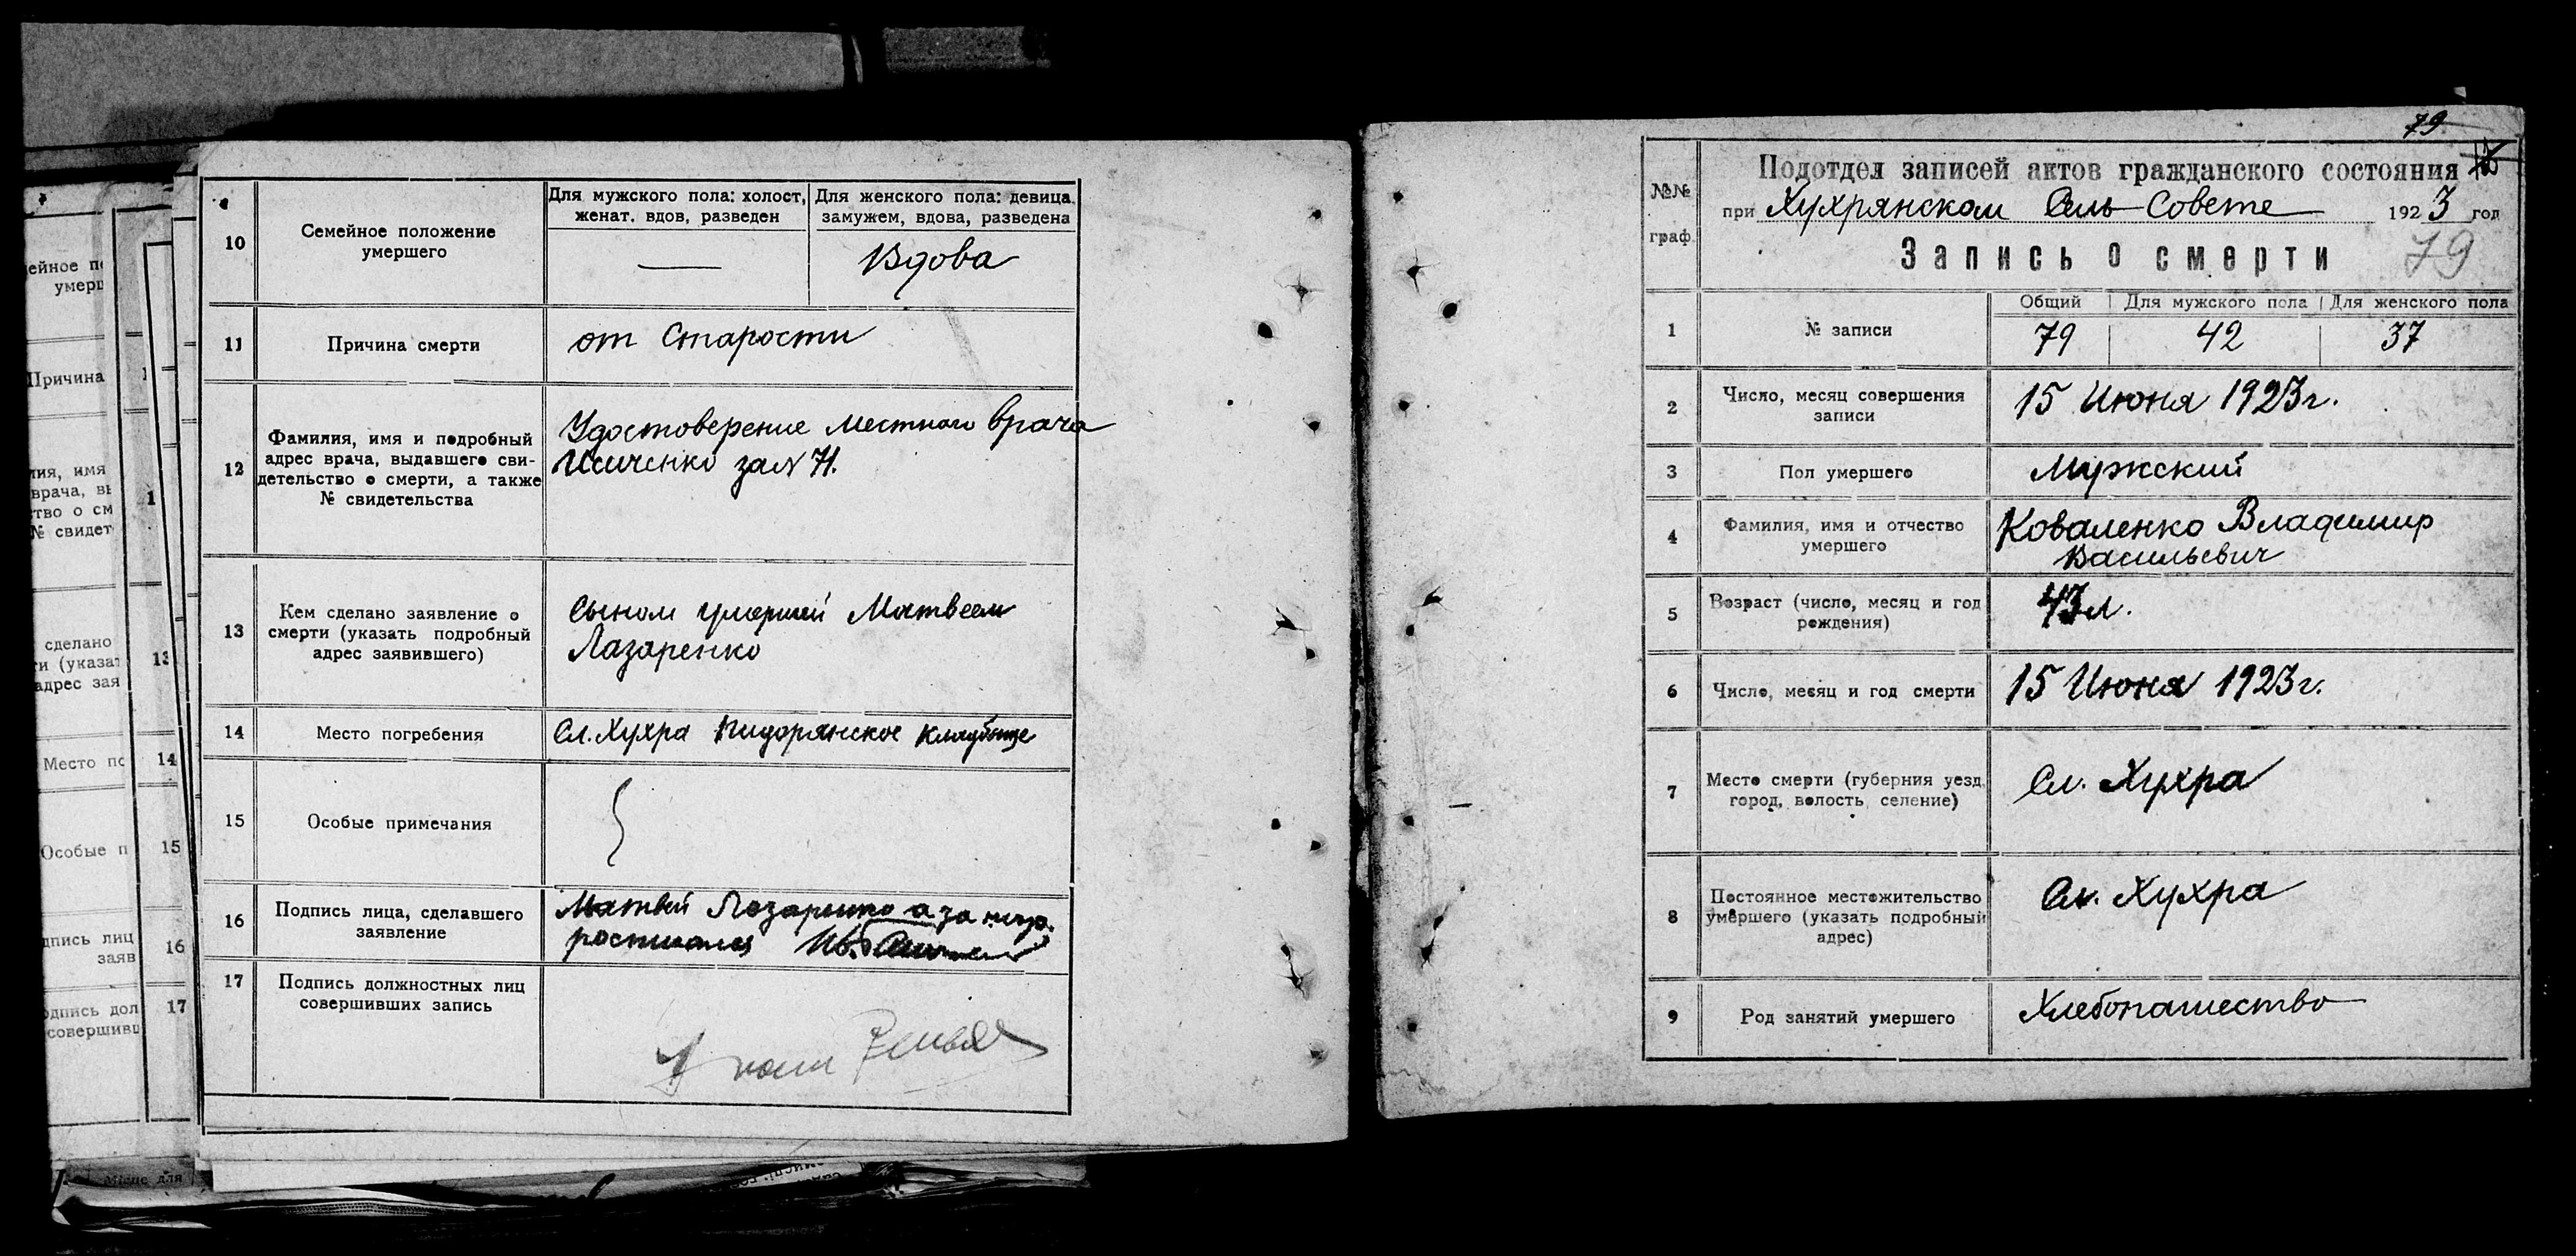 10
Семейное положение
умершего
Для мужского пола: холост,
женат, вдов, разведен
Для женского пола: девица,
замужем, вдова, разведена
—
Вдова
11
Причина смерти
от Старости
12
Фамилия, имя и подробный
адрес врача, выдавшего сви-
детельство о смерти, а также
№ свидетельства
Удостоверение местного врача
за № 71.
13
Кем сделано заявление о
смерти (указать подробный
адрес заявившего)
Сыном умершей Матвеем
Лазаренко
14
Место погребения
Сл. Хухра кладбище
15
Особые примечания
16
Подпись лица, сделавшего
заявление
Матвей Лазаренко а за
17
Подпись должностных лиц
совершивших запись
ейное п
умерш
Причина
ия, имя
врача, в
тво о см
№ свидет
сделано
ти (указат
адрес зая
13
Место по
14
Особые п
15
дпись лиц
заяв
16
одпись дол
совершивш
17
79
№№
граф.
Подотдел записей актов гражданского состояния
при Хухрянском Сель Совете 1923 год
Запись о смерти 79
1
№ записи
Общий
Для мужского пола
Для женского пола
79
42
37
2
Число, месяц совершения
записи
15 Июня 1923 г.
3
Пол умершего
Мужский
4
Фамилия, имя и отчество
умершего
Коваленко Владимир
Васильевич
5
Возраст (число, месяц и год
рождения)
43 л.
6
Число, месяц и год смерти
15 Июня 1923 г.
7
Место смерти (губерния уезд,
город, волость, селение)
Сл. Хухра
8
Постоянное местожительство
умершего (указать подробный
адрес)
Сл. Хухра
9
Род занятий умершего
Хлебопашество